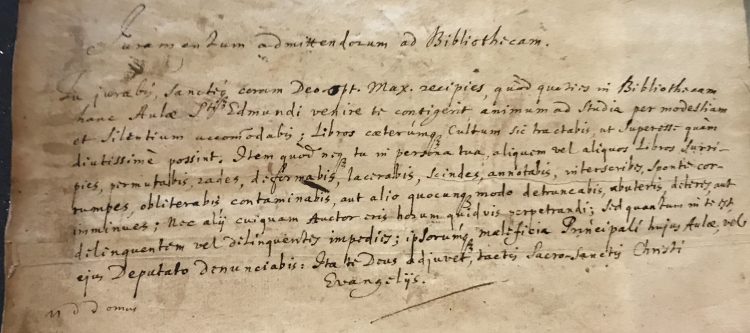 Juramentum admittendorum ad Bibliothecam.
Tu jurabis, Sancteq; coram Deo opt. Max. recipies, quòd quoties in Bibliothecam
hanc Aulæ Sti Edmundi venire te contigerit animum ad Studia per modestiam
et Silentium accomodabis; Libros cæterumq; Cultum sic tractabis, ut Superesse quàm
diutissimè possint. Item quòd neq; tu in persona tua, aliquem vel aliquos Libros Surri-
pies, permutabis, rades, deformabis, lacerabis, scindes, annotabis, interscribes, sponte cor-
rumpes, obliterabis contaminabis, aut alio quocunq; modo detruncabis, abuteris, deteres, aut
imminues; Nec alij cuiquam Auctor eris horum quidvis perpetrandi; Sed quantum in te est
delinquentem vel delinquentes impedies; ipsorumq; maleficia Principali hujus Aulæ, vel
ejus Deputato denunciabis: Ita te Deus adjuvet, tactis Sacro-Sanctis Christi
Evangelijs.
d d domus